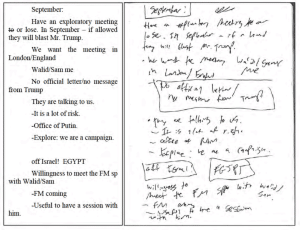 September:
Have an exploratory meeting
to or lose. In September – if allowed
they will blast Mr. Trump.
We want the meeting in
London/England
Walid/Sam me
No official letter/no message
from Trump
They are talking to us.
-It is a lot of risk.
-Office of Putin.
-Explore: we are a campaign.
off Israel! EGYPT
Willingness to meet the FM sp
with Walid/Sam
-FM coming
-Useful to have a session with
him.
September:
Have an exploratory meeting to or
lose. In September – if allowed
they will blast Mr. Trump.
We want the meeting
in London/England
Walid/Sam
me
No official letter/
no message from Trump
They are talking to us.
- It is a lot of risk.
- Office of Putin.
- Explore: we are a campaign.
off Israel!
EGYPT
Willingness to
meet the FM sp with Walid/
Sam
- FM coming
- Useful to have a session
with him.